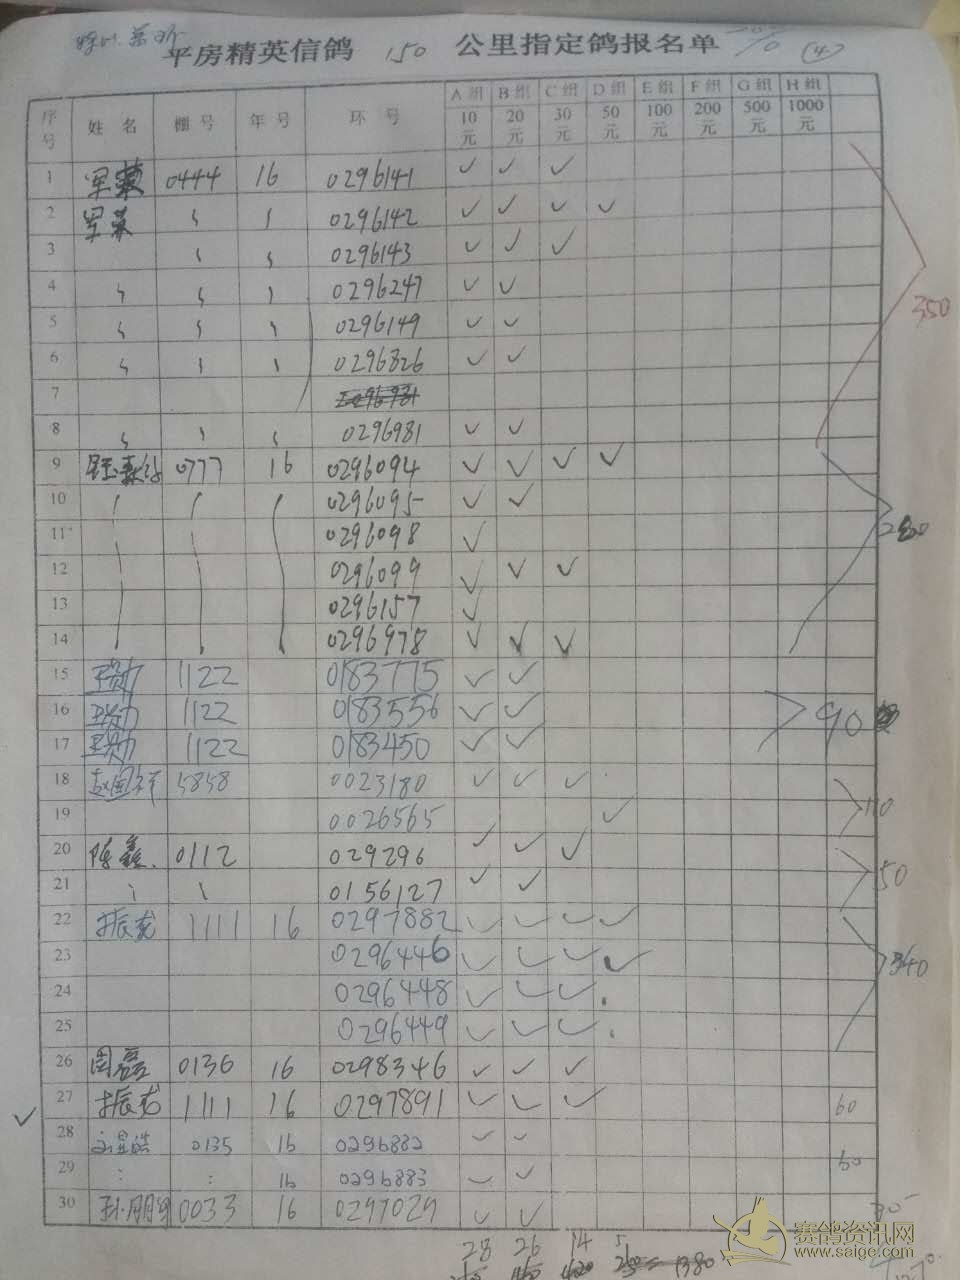 平房精英信鸽 150 公里指定鸽报名单 (4)
序号 姓名 棚号 年号 环号 A组10元 B组20元 C组30元 D组50元 E组100元 F组200元 G组500元 H组1000元
1 0444 16 0296141 ✓ ✓ ✓
2 0296142 ✓ ✓ ✓ ✓
3 0296143 ✓ ✓ ✓
4 0296247 ✓ ✓
5 0296149 ✓ ✓
6 0296826 ✓ ✓
350
7
8 0296981 ✓ ✓
9 0777 16 0296094 ✓ ✓ ✓ ✓
10 0296095 ✓ ✓
11 0296098 ✓
12 0296099 ✓ ✓ ✓
13 0296157 ✓
14 0296978 ✓ ✓ ✓
15 1122 0183775 ✓ ✓
16 1122 0183556 ✓ ✓
90
17 1122 0183450 ✓ ✓
18 赵国祥 5858 0023180 ✓ ✓ ✓
110
19 0026565 ✓
20 陈鑫 0112 029296 ✓ ✓ ✓
50
21 0156127 ✓ ✓
22 振龙 1111 16 0297882 ✓ ✓ ✓ ✓
23 0296446 ✓ ✓ ✓ ✓
340
24 0296448 ✓ ✓ ✓
25 0296449 ✓ ✓ ✓
26 周磊 0136 16 0298346 ✓ ✓ ✓
27 振龙 1111 16 0297891 ✓ ✓ ✓ 60
✓
28 0135 16 0296882 ✓ ✓
29 16 0296883 ✓ ✓ 60
30 0033 16 0297029 ✓ ✓
28 26 14 5
1380
赛鸽资讯网
www.saige.com